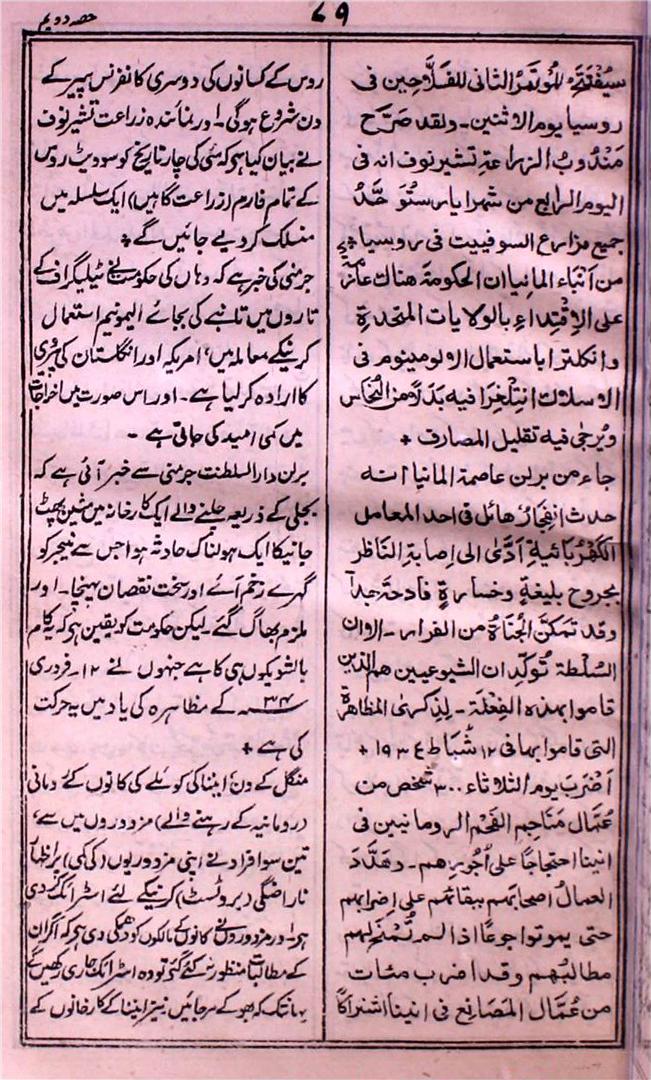 ۷۹
حصہ دویم
سیُفْتَتَحُ المُوتمرُ الثانی للفَلَّاحِین فی
روسیا یوم الاثنین۔ ولقد صَرَّح
مَنْدُوبُ الزراعۃِ تشیر نوف انہ فی
الیوم الرابع من شھر ایار سَتُوَحَّدُ
جمیع مزارع السوفییت فی روسیا
من اَنبَاءِ المانیا ان الحکومۃ ھناک عازمۃ
علی الاِقْتِداءِ بالولایات المتحدۃِ
وانکلترا باستعمال الالومینوم فی
الاسلاک التِلِغرافیہ بَدَلًا من النُّحَاس
ویُرجیٰ فیہ تقلیل المصارف +
جاء من برلن عاصمۃ المانیا انہ
حدث اِنفِجارٌ ھائل فی احد المعامل
الکَھْرُبَائیۃِ اَدَّی الی اِصابۃِ النّاظر
بجروحٍ بلیغۃٍ وخسارۃٍ فادحۃٍ جداً
وقد تمکن الجُناۃُ من الفرار۔ الا ان
السُلطۃَ تُوکِّد ان الشیوعیین ھم الذین
قاموا بھذہ الفِعْلَۃ۔ لِذِکریٰ المظاھرۃ
التی قاموا بھا فی ۱۲ شُبَاط ۱۹۳۴ +
اَضْرَبَ یوم الثلاثاء ۳۰۰ شخص من
عُمَّال مَنَاجِم الفَحْم الرومانیین فی
انینا احتجاجًا علی اُجُورِھم۔ وھَدَّدَ
العمالُ اصحابَھم ببقائھم علی اِضرابھم
حتی یموتوا جوعًا اذا لم تُمْنَحْ لھم
مطالبُھم وقد اضرب مئات
من عُمَّال المَصَانِع فی انینا اشتراکًا
روس کے کسانوں کی دوسری کانفرنس پیر کے
دن شروع ہوگی۔ اور نمائندہ زراعت تشیر نوف
نے بیان کیا ہے کہ مئی کی چار تاریخ کو سوویٹ روس
کے تمام فارم (زراعت گاہیں) ایک سلسلہ میں
منسلک کر دیے جائیں گے +
جرمنی کی خبر ہے کہ وہاں کی حکومت نے ٹیلیگراف کے
تاروں میں تانبے کی بجائے الیمونیم استعمال
کرنیکے معاملہ میں، امریکہ اور انگلستان کی پیروی
کا ارادہ کر لیا ہے۔ اور اس صورت میں اخراجات
میں کمی امید کی جاتی ہے۔
برلن دار السلطنت جرمنی سے خبر آئی ہے کہ
بجلی کے ذریعہ چلنے والے ایک کارخانہ میں مشین پھٹ
جانیکا ایک ہولناک حادثہ ہوا جس سے منیجر کو
گہرے زخم آئے اور سخت نقصان پہنچا۔ اور
ملزم بھاگ گئے۔ لیکن حکومت کو یقین ہے کہ یہ کام
بالشویکوں ہی کا ہے جنہوں نے ۱۲۔ فروری
۳۴ء کے مظاہرہ کی یاد میں یہ حرکت
کی ہے +
منگل کے دن، اینا کی کوئلے کی کانوں کے رومانی
(رومانیہ کے رہنے والے) مزدوروں میں سے،
تین سو افراد نے اپنی مزدوریوں (کی کمی) پر اظہار
ناراضگی (پروٹسٹ) کرنیکے لئے اسٹرائک کردی
ہے۔ اور مزدوروں نے کانوں کے مالکوں کو دھمکی دی ہے کہ اگر ان
کے مطالبات منظور نہ کئے گئے تو وہ اسٹرائک جاری رکھیں گے
یہانتک کہ بھوکے مرجائیں۔ نیز اینا کے کارخانوں کے